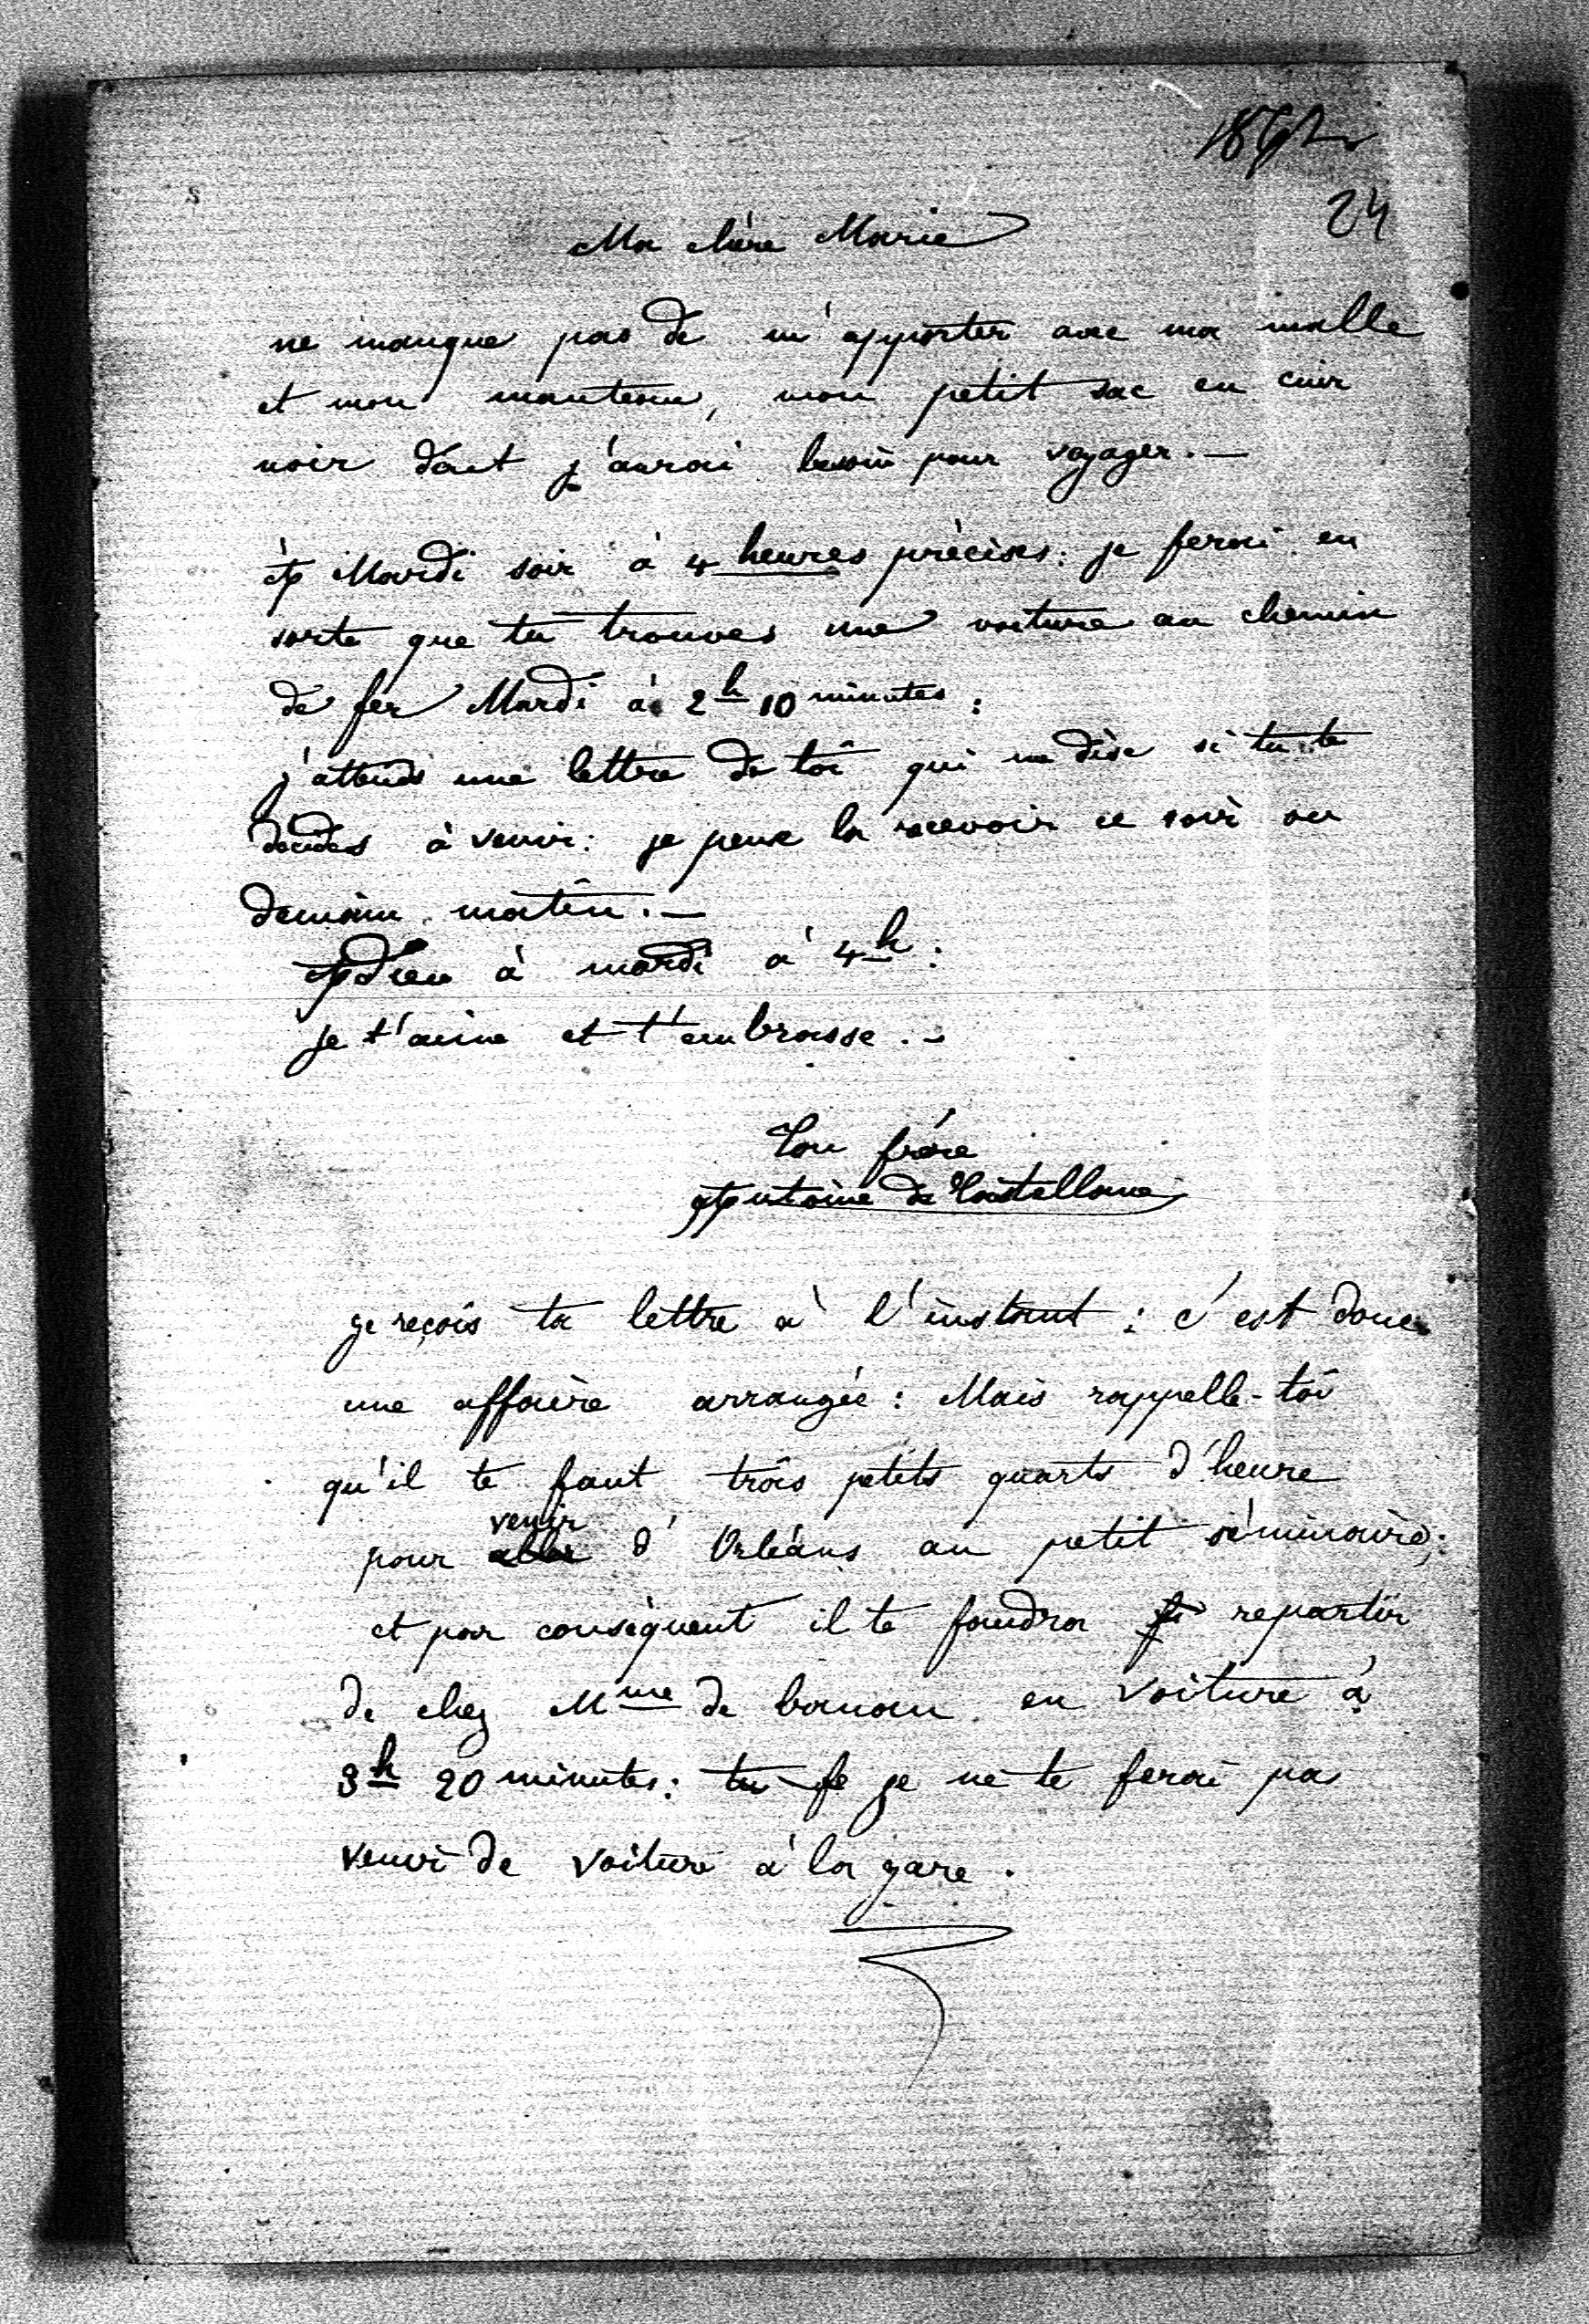 24
Ma chère Marie
ne manque pas de m'apporter avec ma malle
et mon manteau, mon petit sac en cuir
noir dont j'aurai besoin pour voyager. —
À Mardi soir à 4 heures précises: je ferai en
sorte que tu trouves une voiture au chemin
de fer Mardi à 2h 10 minutes:
j'attends une lettre de toi qui me dise si tu te
décides à venir: je peux la recevoir ce soir ou
demain matin. —
Adieu à mardi à 4h:
je t'aime et t'embrasse. -
Ton frère
Antoine de Castellane
je reçois ta lettre à l'instant: c'est donc
une affaire arrangée: Mais rappelle-toi
qu'il te faut trois petits quarts d'heure
venir
pour aller d'Orléans au petit séminaire;
et par conséquent il te faudra repartir
de chez Mme de en voiture à
3h 20 minutes: tu fe je ne te ferai pas
venir de voiture à la gare.